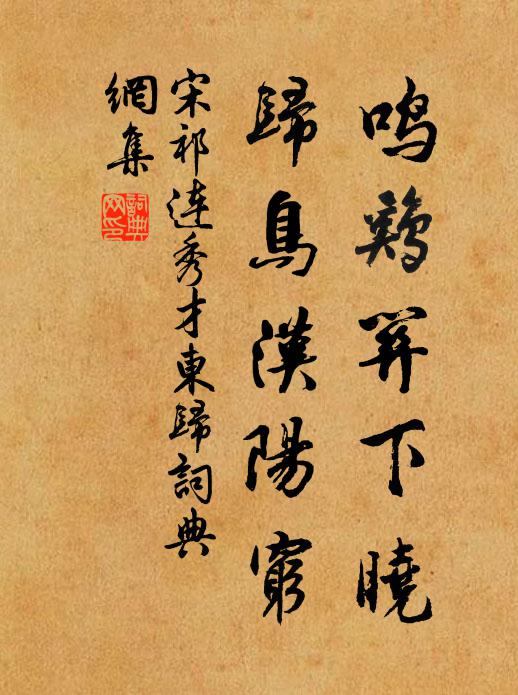 鳴鷄笄下曉
歸鳥漢陽窮
宋祁連秀才東歸詞典
網集
詞典
网印